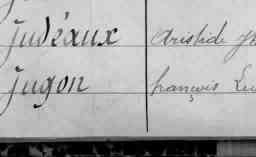 Judéaux Aristide
Jugon françois